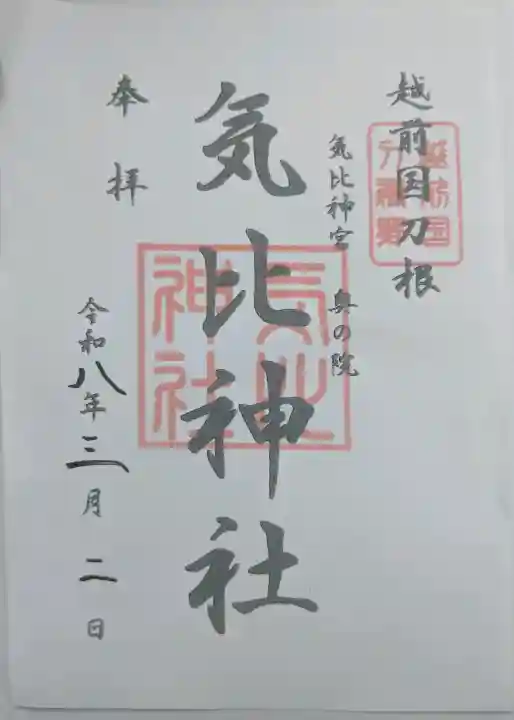 越前国刀根
気比神宮 奥の院
気比神社
奉拝
令和八年三月二日
気比
神社